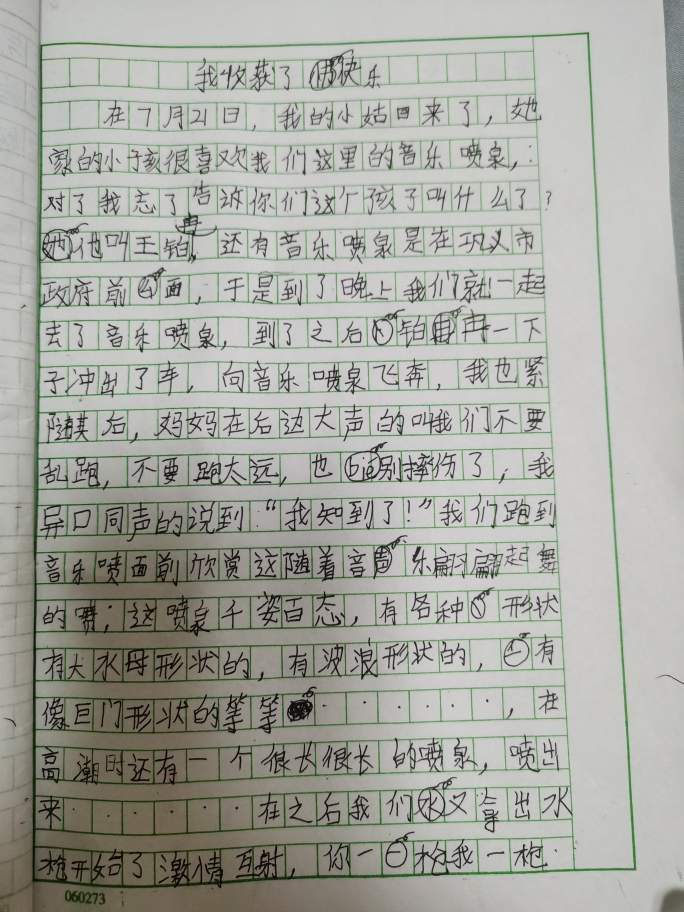 我收获了快乐
在7月21日，我的小姑回来了，她
家的小孩很喜欢我们这里的音乐喷泉，：
对了我忘了告诉你们这个孩子叫什么了？
他叫王铂冉，还有音乐喷泉是在巩义市
政府前面，于是到了晚上我们就一起
去了音乐喷泉，到了之后铂冉一下
子冲出了车，向音乐喷泉飞奔，我也紧
随其后，妈妈在后边大声的叫我们不要
乱跑，不要跑太远，也别摔伤了，我
异口同声的说到：“我知到了！”我们跑到
音乐喷面前欣赏这随着音乐翩翩起舞
的喷；这喷泉千姿百态，有各种形状
有大水母形状的，有波浪形状的，有
像巨门形状的等等······，在
高潮时还有一个很长很长的喷泉，喷出
来······在之后我们又拿出水
枪开始了激情互射，你一枪我一枪·
060273